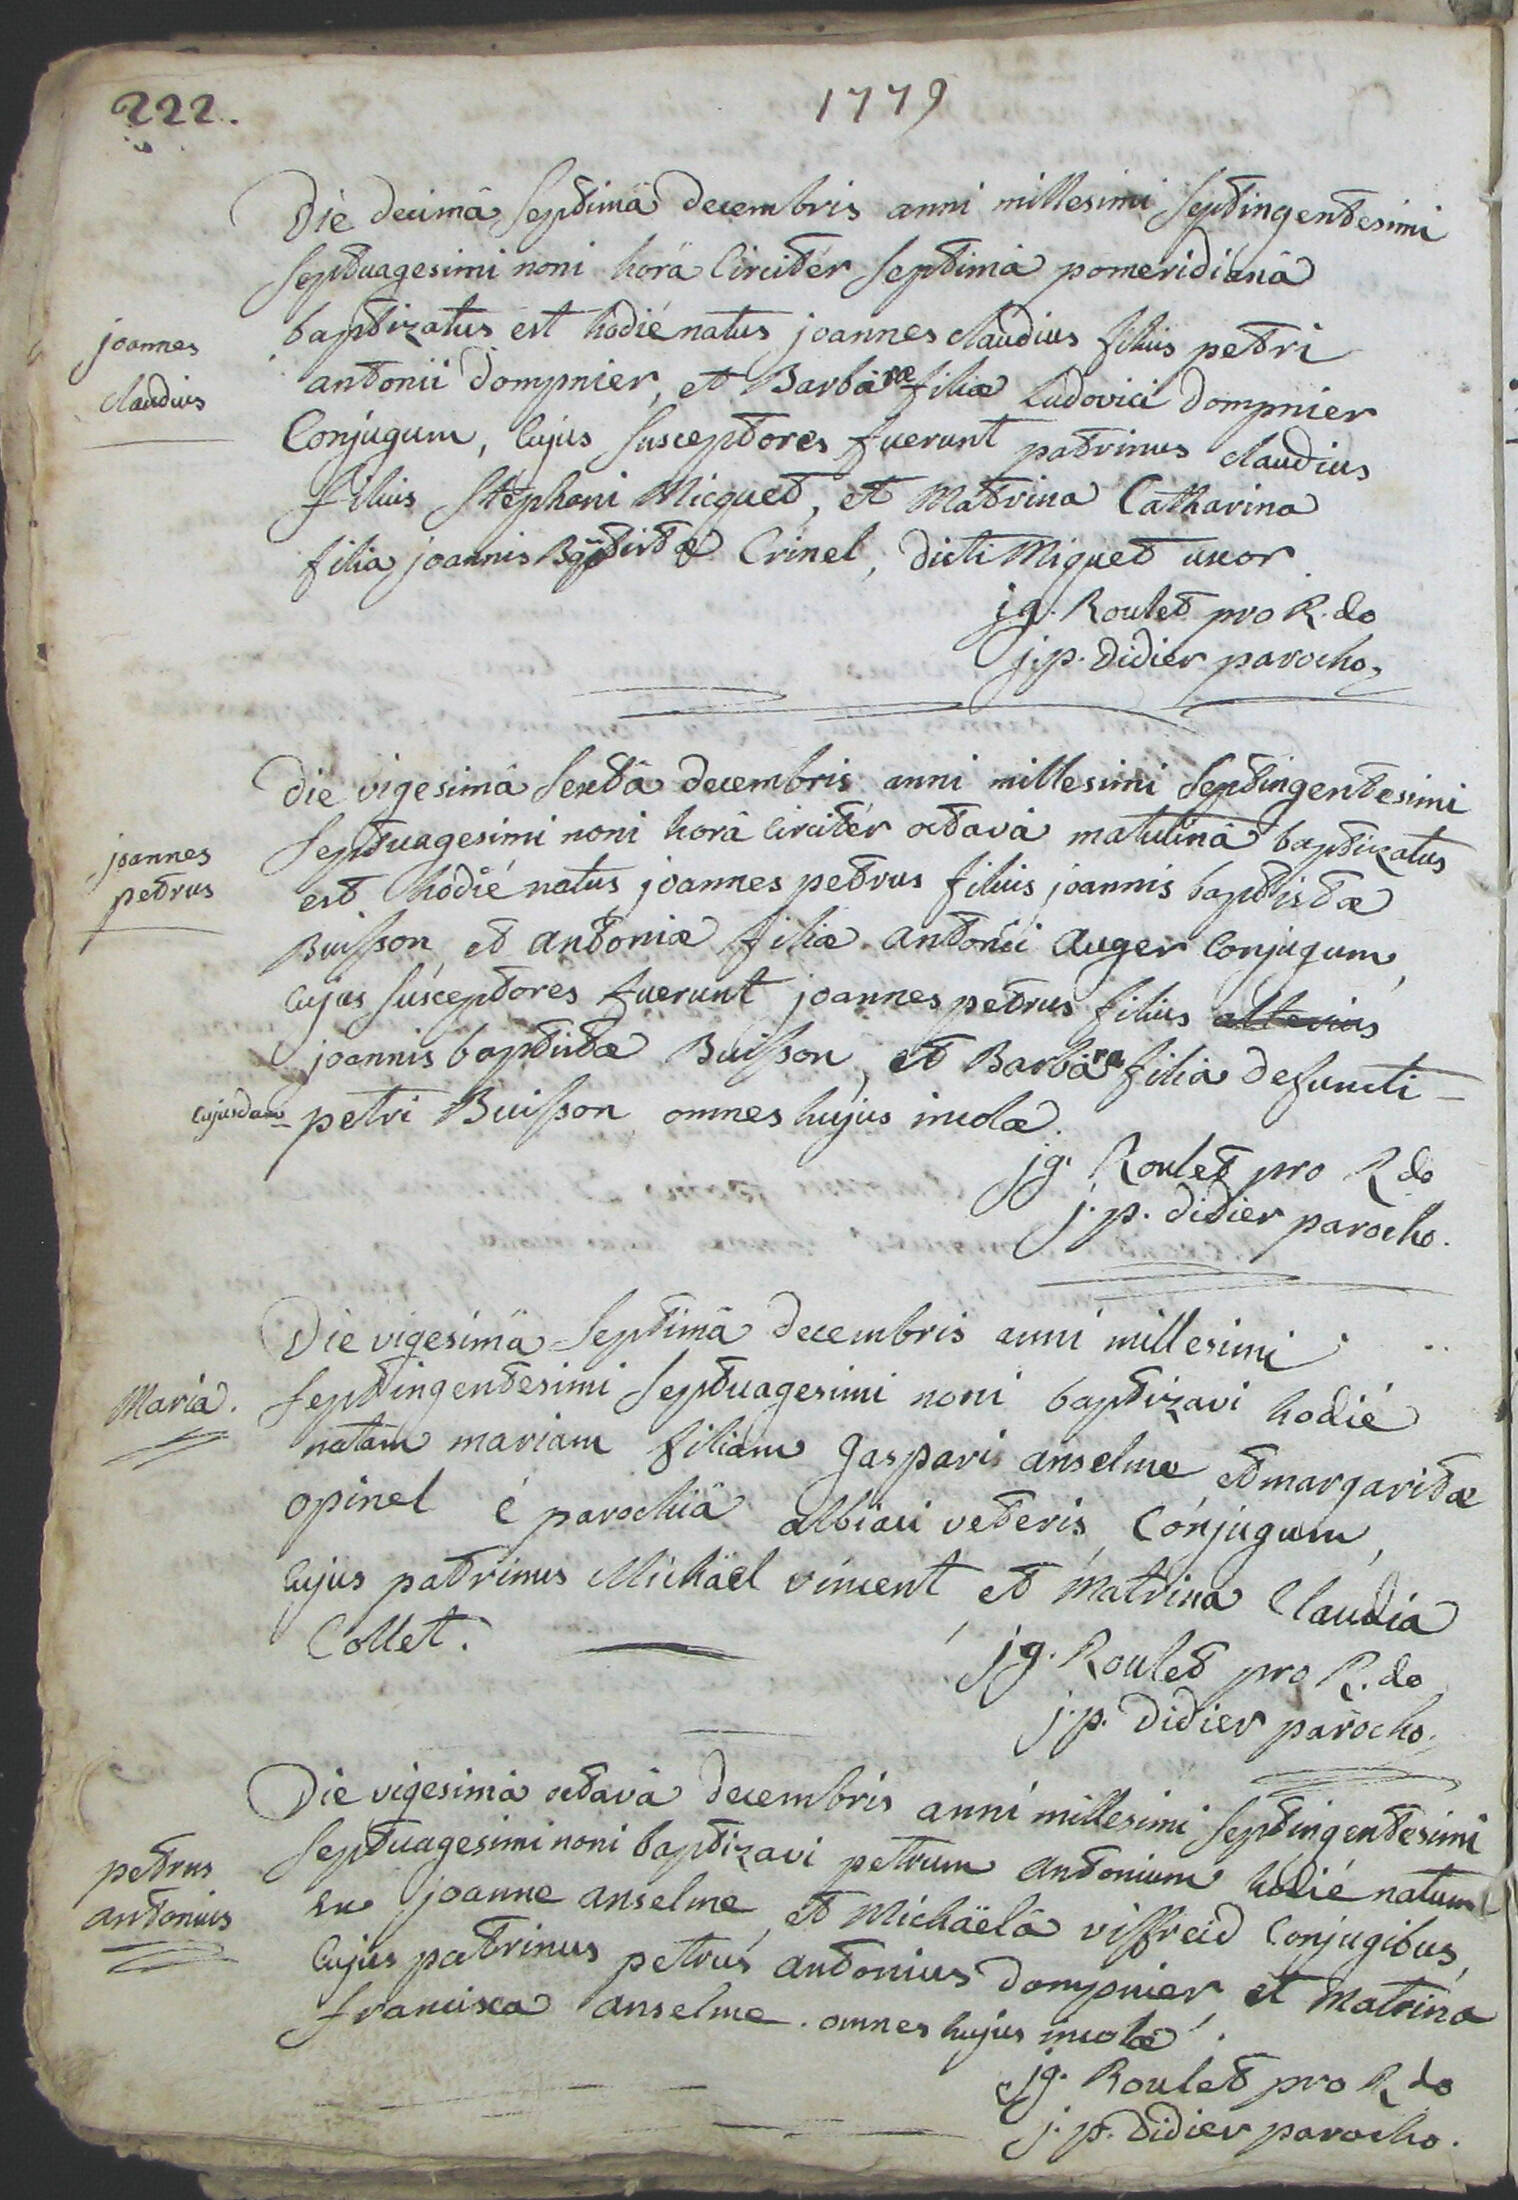 222.
1779
Die decimâ septimâ decembris anni millesimi septingentesimi
septuagesimi noni horâ circitér septimâ pomeridianâ
joannes
claudius
baptizatus est hodié natus joannes claudius filius petri
antonii Dompnier, et Barbaræ filiæ Ludovici Dompnier
Conjugum, cujus susceptores fuerunt patrinus claudius
filius Stephani Micquet, et Matrina Catharina
filia joannis Baptistæ Crinel, dicti Miquet uxor
jg. Roulet pro R.do
j.p. didier parocho,
Die vigesimâ sextâ decembris anni millesimi septingentesimi
joannes
petrus
septuagesimi noni horâ circitér octavâ matutinâ baptizatus
est hodié natus joannes petrus filius joannis baptistæ
Buisson et antoniæ filiæ antonii Auger Conjugum,
cujus susceptores fuerunt joannes petrus filius alterius
joannis baptistæ Buisson, et Barbara filia defuncti
cujusdam petri Buisson omnes hujus incolæ.
jg. Roulet pro R do
j.p. didier parocho.
Die vigesimâ septimâ decembris anni millesimi
Maria.
septingentesimi septuagesimi noni baptizavi hodié
natam mariam filiam Gaspari anselme et margaritæ
opinel é parochiâ albiaci veteris, Conjugum,
cujus patrinus Michaël vincent et Matrina Claudia
Collet.
jg. Roulet pro R.do
j.p. Didier parocho.
Die vigesimâ octavâ decembris anni millesimi septingentesimi
petrus
antonius
septuagesimi noni baptizavi petrum antonium hodié natum
ex joanne anselme, et Michaëlâ viffreid Conjugibus,
cujus patrinus petrus antonius Dompnier et Matrina
francisca anselme. omnes hujus incolæ.
jg. Roulet pro R do
j.p. Didier parocho.